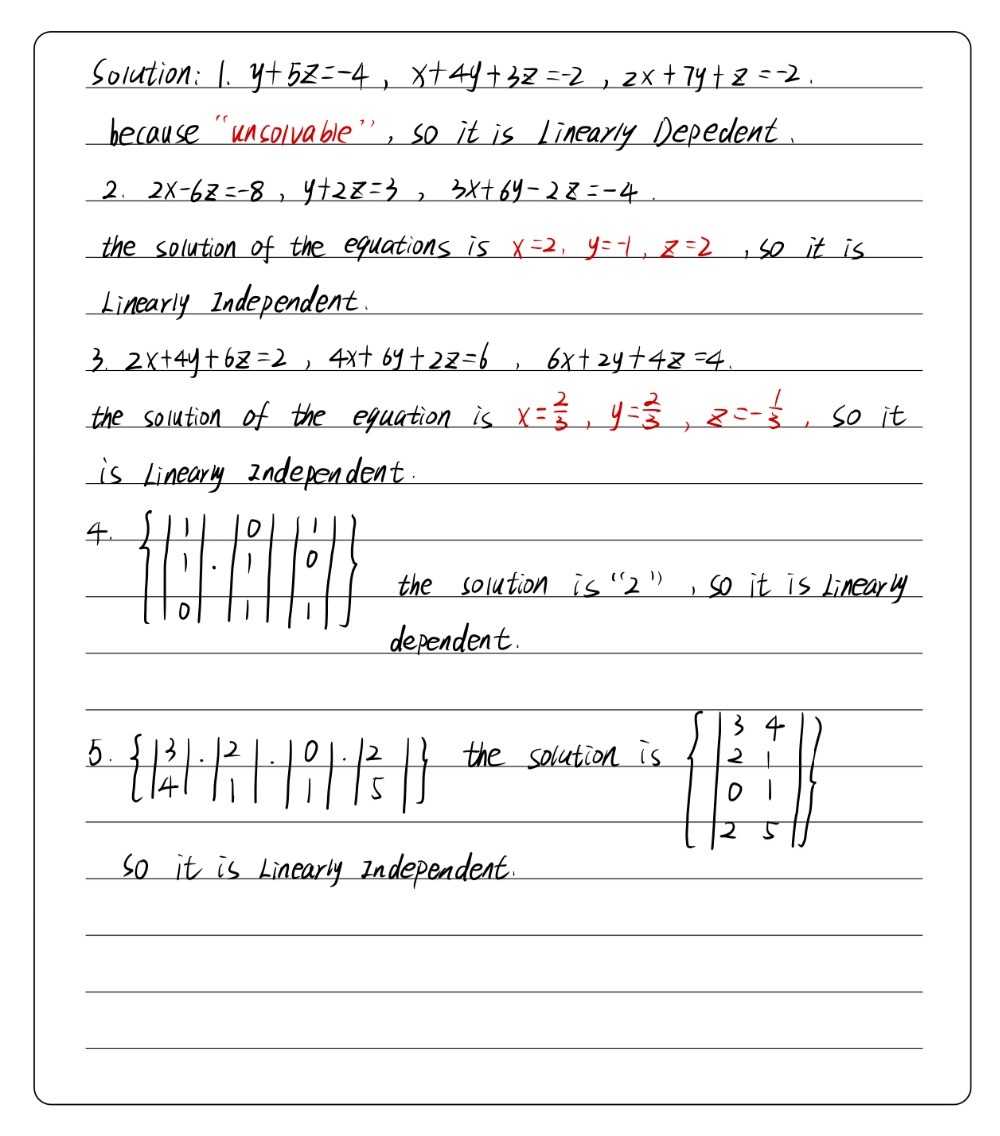 Solution: 1. y+5z=-4 , x+4y+3z=-2 , 2x+7y+z=-2.
because "unsolvable" , so it is Linearly Depedent.
2. 2x-6z=-8 , y+2z=3 , 3x+6y-2z=-4 .
the solution of the equations is x=2, y=-1, z=2 , so it is
Linearly Independent.
3. 2x+4y+6z=2 , 4x+6y+2z=6 , 6x+2y+4z=4.
the solution of the equation is x=2/3 , y=2/3 , z=-1/3 , so it
is Linearly Independent.
4. {|1 1 0| . |0 1 1| |1 0 1|}
the solution is "2" , so it is Linearly
dependent.
5. {|3 4| . |2 1| . |0 1| . |2 5|} the solution is {|3 4 2 1 0 1 2 5|}
so it is Linearly Independent.